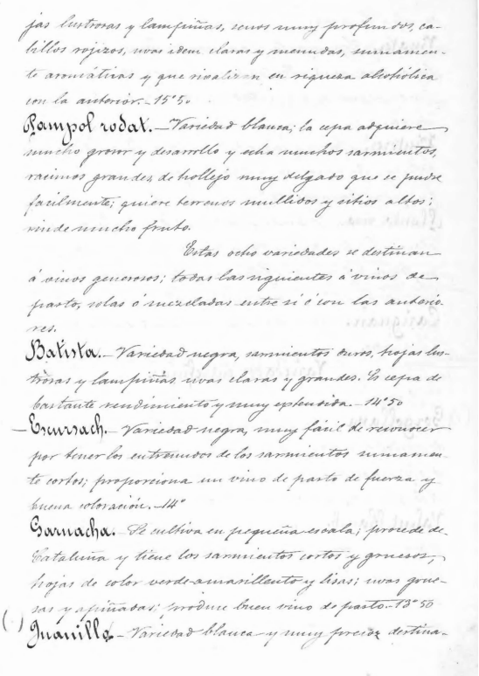 jas lustrosas y lampiñas, senos muy profundos, ca-
billos rojizos, uvas idem claras y menudas, sumamen-
te aromáticas y que rivalizan en riqueza alcohólica
con la anterior. 15°50
Pampol rodat. — Variedad blanca; la cepa adquiere
mucho grosor y desarrollo y echa muchos sarmientos,
racimos grandes de hollejo muy delgado que se pudre
facilmente; quiere terrenos mullidos y sitios altos;
rinde mucho fruto.
Estas ocho variedades se destinan
á vinos generosos; todas las siguientes á vinos de
pasto, solas ó mezcladas entre si ó con las anterio-
res.
Batista. — Variedad negra, sarmientos duros, hojas lus-
trosas y lampiñas uvas claras y grandes. Es cepa de
bastante rendimiento y muy esplendida. — 14°50
— Escursach. — Variedad negra, muy fácil de reconocer
por tener los entrenudos de los sarmientos sumamen-
te cortos; proporciona un vino de pasto de fuerza y
buena coloración. — 14°
Garnacha. — Se cultiva en pequeña escala; procede de
Cataluña y tiene los sarmientos cortos y gruesos,
hojas de color verde-amarillento y lisas; uvas grue-
sas y apiñadas; produce buen vino de pasto — 13°50
(·) Juanillo — Variedad blanca y muy precoz destina-